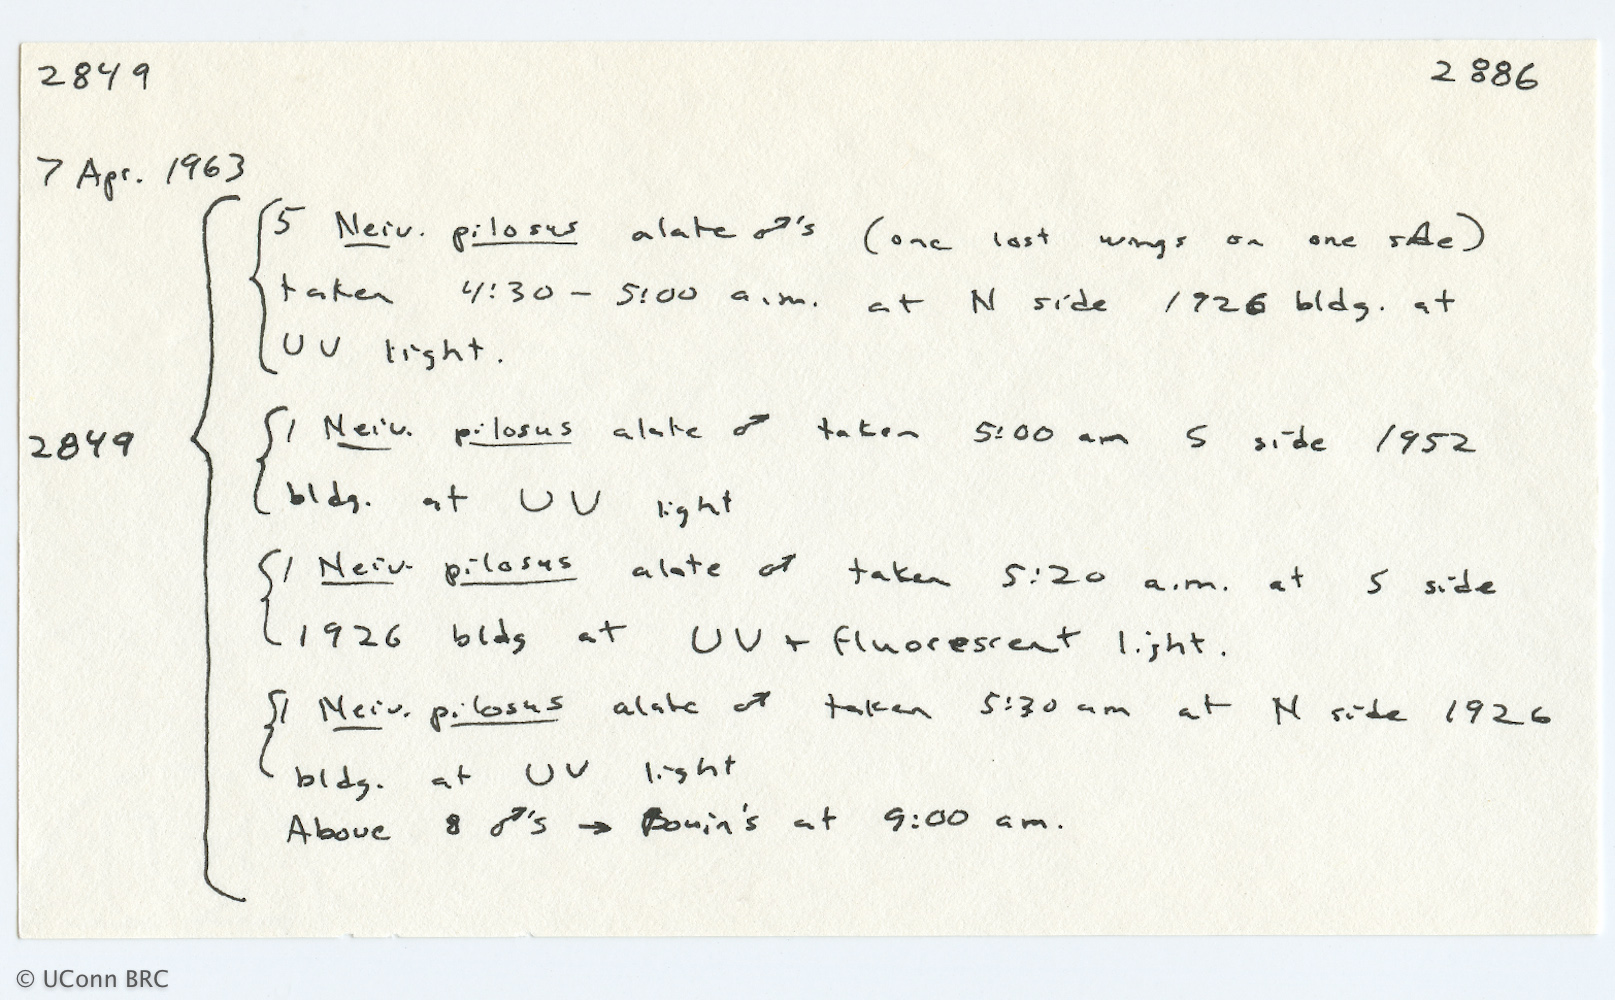 2849 2886
7 Apr. 1963
5 Neiv. pilosus alate ♂'s (one lost wings on one side)
taken 4:30 – 5:00 a.m. at N side 1926 bldg. at
UV light.
2849
1 Neiv. pilosus alate ♂ taken 5:00 am S side 1952
bldg. at UV light
1 Neiv. pilosus alate ♂ taken 5:20 a.m. at S side
1926 bldg at UV + fluorescent light.
1 Neiv. pilosus alate ♂ taken 5:30 am at N side 1926
bldg. at UV light
Above 8 ♂'s → Bouin's at 9:00 am.
© UConn BRC